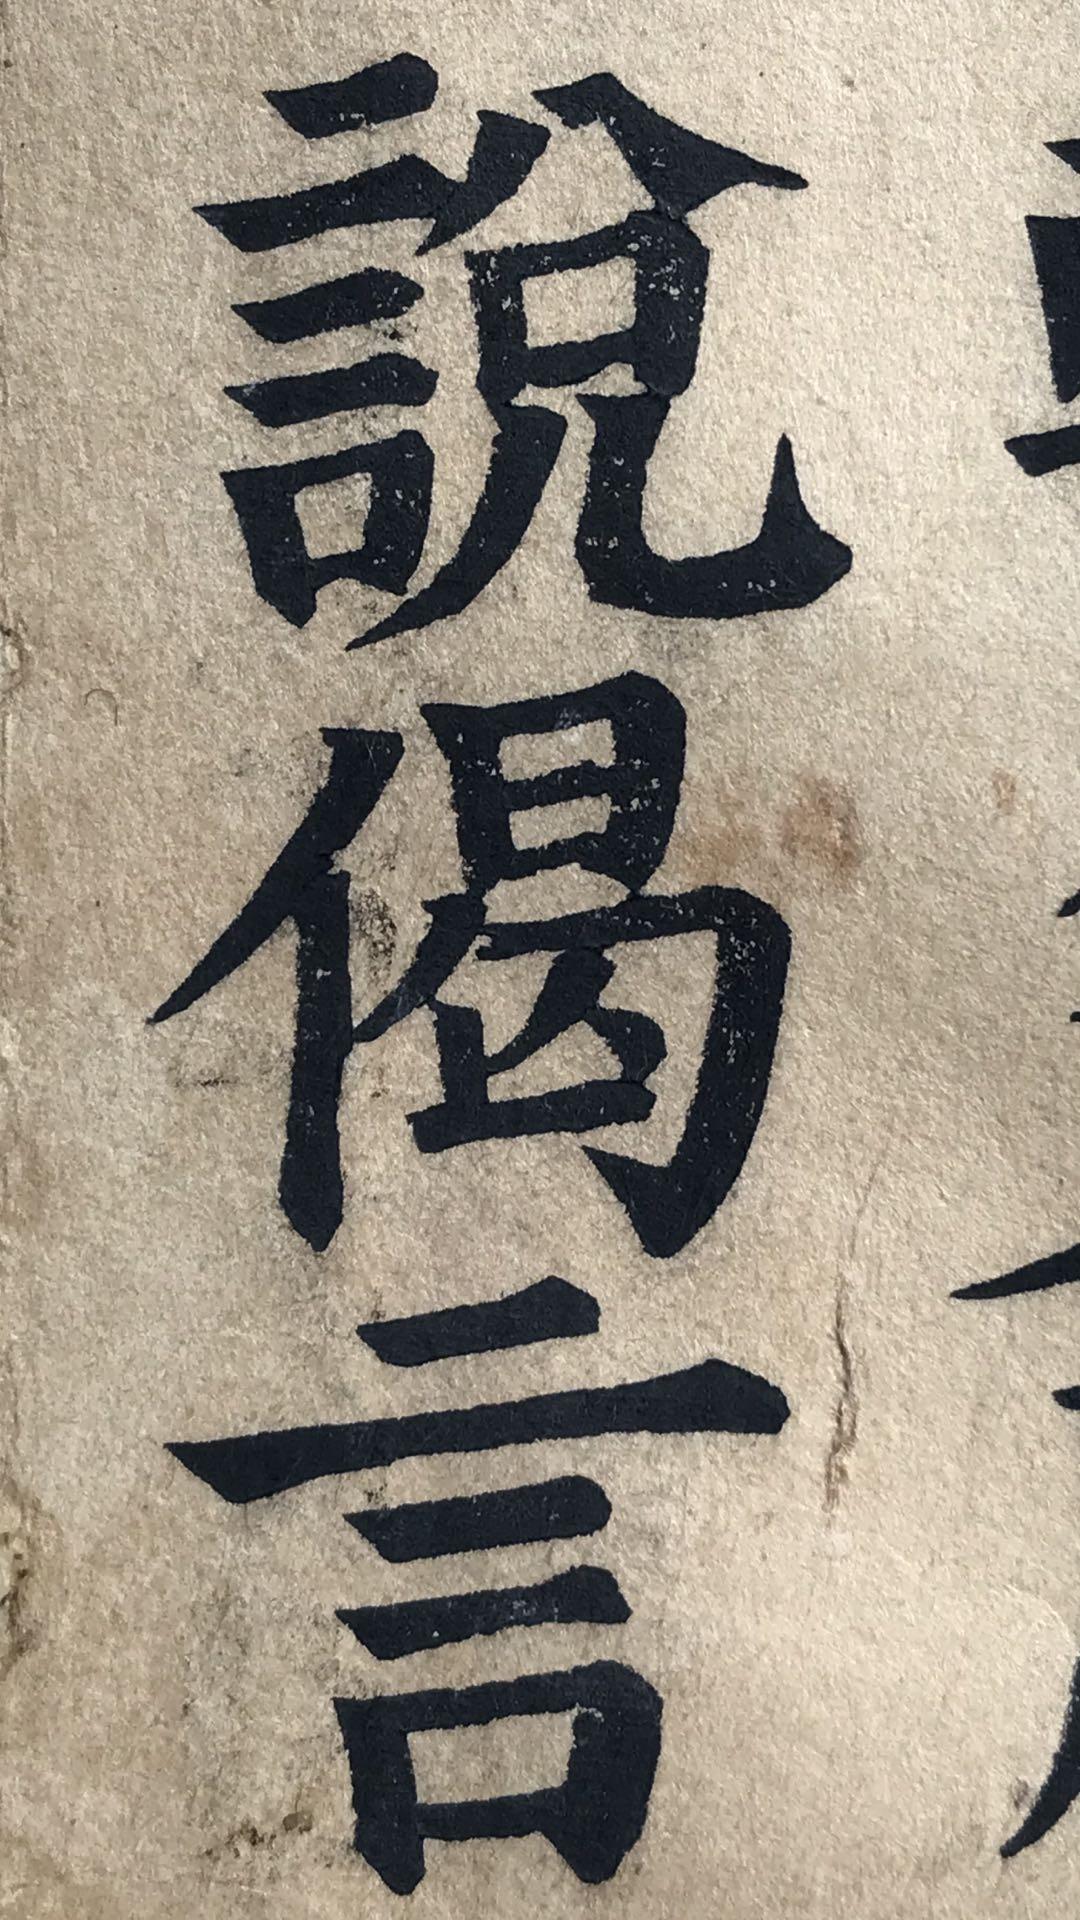 說偈言